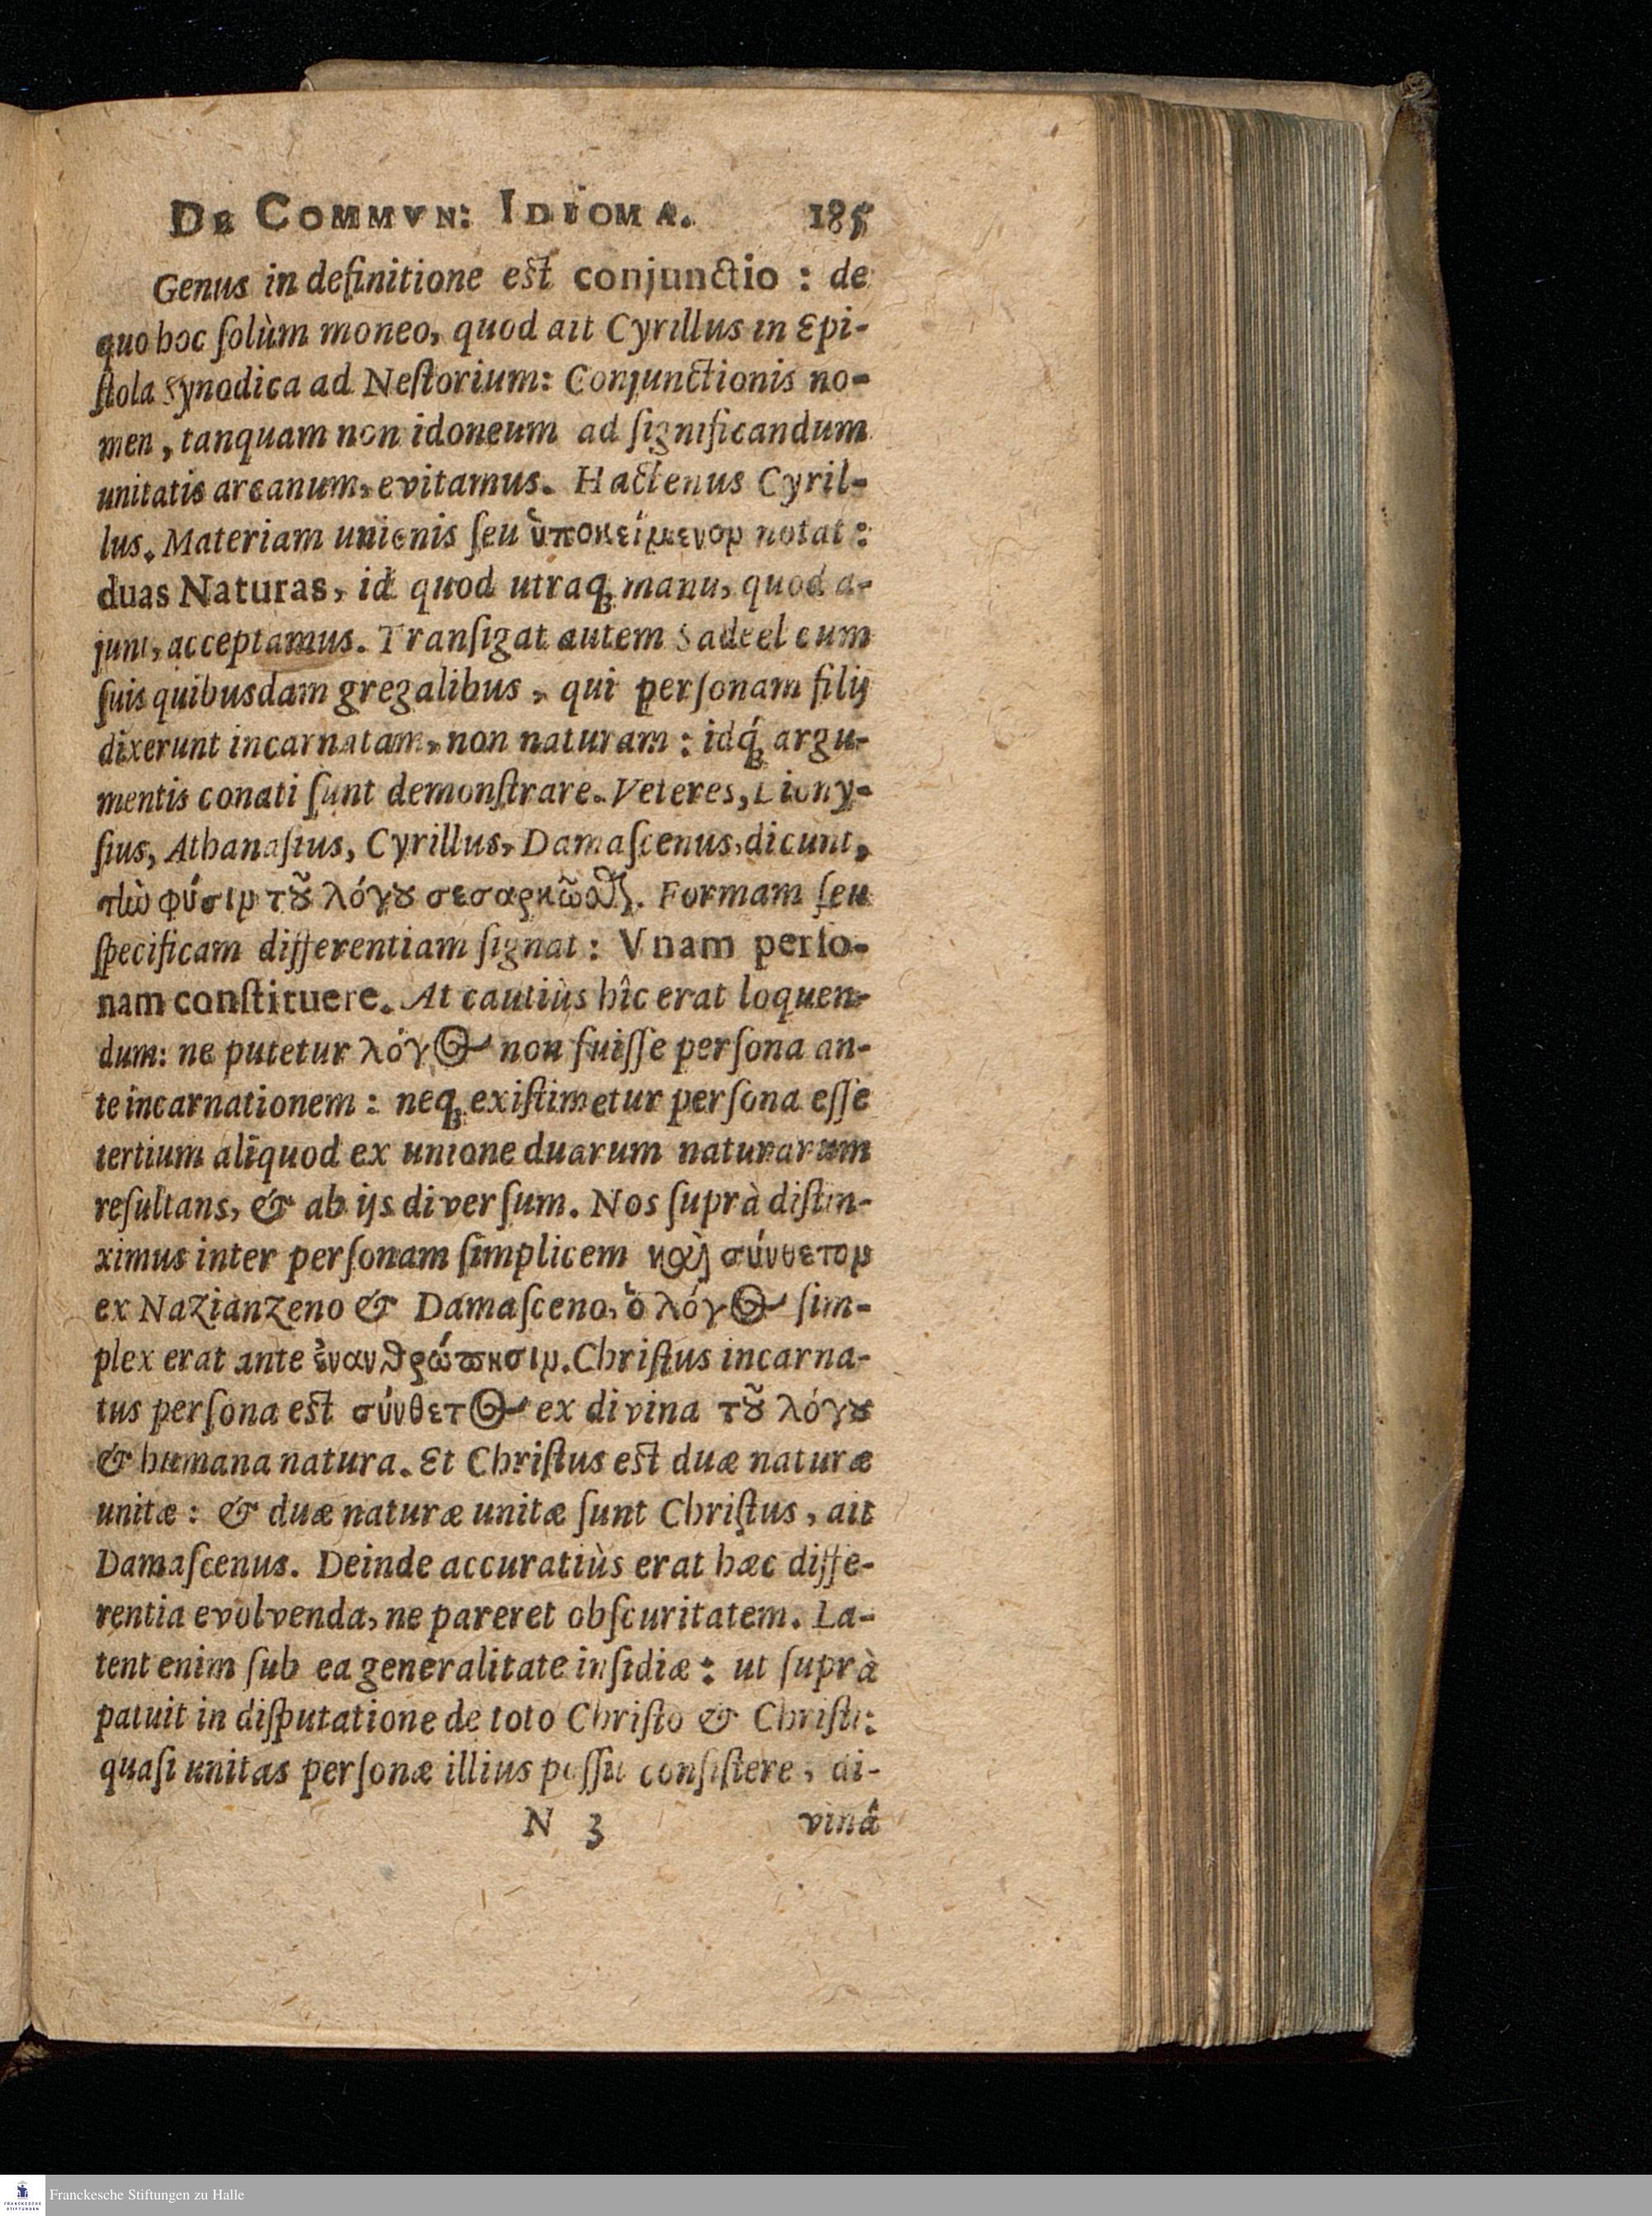 DE COMMVN: IDIOMA. 185
Genus in definitione est conjunctio: de
quo hoc ſolùm moneo, quod ait Cyrillus in Epi-
ſtola Synodica ad Neſtorium: Conjunctionis no-
men, tanquam non idoneum ad ſignificandum
unitatis arcanum, evitamus. Hactenus Cyril-
lus. Materiam unionis ſeu ὑποκείμενον notat:
duas Naturas, id quod utraq; manu, quod a-
junt, acceptamus. Tranſigat autem Sadeel cum
ſuis quibusdam gregalibus, qui perſonam filij
dixerunt incarnatam, non naturam: idq́; argu-
mentis conati ſunt demonſtrare. Veteres, Diony-
ſius, Athanaſius, Cyrillus, Damaſcenus, dicunt,
τὴν φύσιν τȣ͂ λόγȣ σεσαρκῶσθαι. Formam ſeu
ſpecificam differentiam ſignat: Vnam perſo-
nam conſtituere. At cautiùs hîc erat loquen-
dum: ne putetur λόγος non fuiſſe perſona an-
te incarnationem: neq; exiſtimetur perſona eſſe
tertium aliquod ex unione duarum naturarum
reſultans, & ab ijs diverſum. Nos ſuprà diſtin-
ximus inter perſonam ſimplicem καὶ σύνθετον
ex Nazianzeno & Damaſceno, ὁ λόγος ſim-
plex erat ante ἐνανθρώπησιν. Chriſtus incarna-
tus perſona est σύνθετος ex divina τȣ͂ λόγȣ
& humana natura. Et Chriſtus est duæ naturæ
unitæ: & duæ naturæ unitæ ſunt Chriſtus, ait
Damaſcenus. Deinde accuratiùs erat hæc diffe-
rentia evolvenda, ne pareret obſcuritatem. La-
tent enim ſub ea generalitate inſidiæ: ut ſuprà
patuit in diſputatione de toto Chriſto & Chriſti:
quaſi unitas perſonæ illius poſſit conſiſtere, di-
N 3 vinâ
Franckesche Stiftungen zu Halle